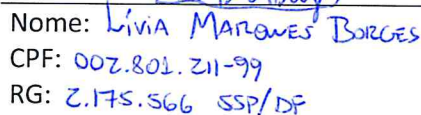 Nome: Lívia Marques Borges
CPF: 002.801.211-99
RG: 2.175.566 SSP/DF